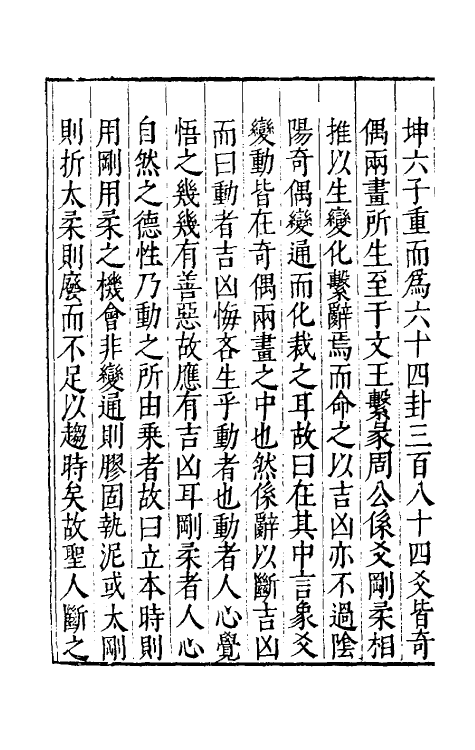 坤六子重而爲六十四卦三百八十四爻皆奇
偶兩畫所生至于文王繫彖周公係爻剛柔相
推以生變化繫辭焉而命之以吉凶亦不過陰
陽奇偶變通而化裁之耳故曰在其中言象爻
變動皆在奇偶兩畫之中也然係辭以斷吉凶
而曰動者吉凶悔吝生乎動者也動者人心覺
悟之幾幾有善惡故應有吉凶耳剛柔者人心
自然之德性乃動之所由乘者故曰立本時則
用剛用柔之機會非變通則膠固執泥或太剛
則折太柔則廢而不足以趨時矣故聖人斷之